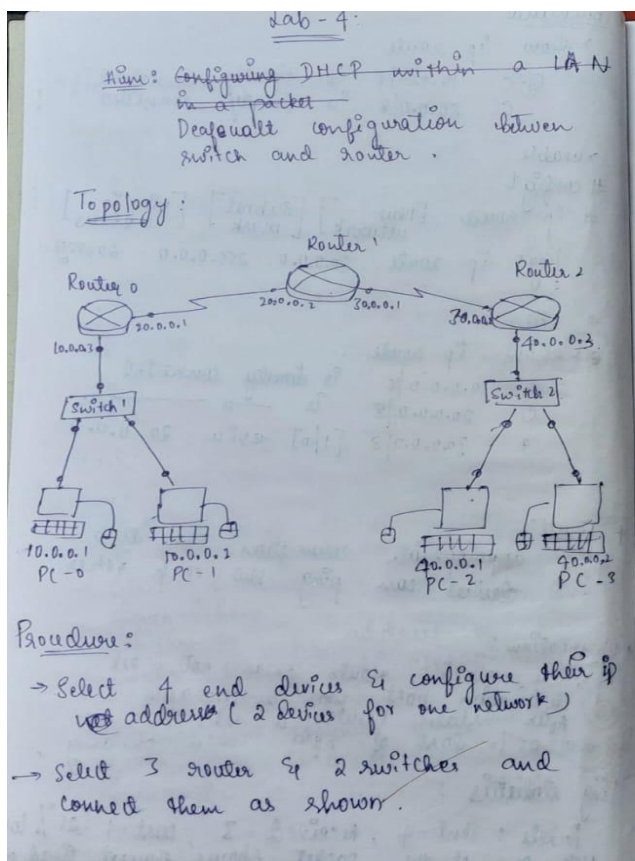 Lab - 4
Aim: Configuring DHCP within a LAN
in a packet
Deafqualt configuration betwen
switch and router .
Topology :
Router 1
Router 0
Router 2
20.0.0.1
20.0.0.2
30.0.0.1
10.0.0.3
40.0.0.3
Switch 1
Switch 2
10.0.0.1
10.0.0.2
40.0.0.1
40.0.0.2
PC-0
PC-1
PC-2
PC-3
Procedure :
→ Select 4 end devices & configure their ip
address ( 2 devices for one network )
→ Select 3 router & 2 switches and
connect them as shown .